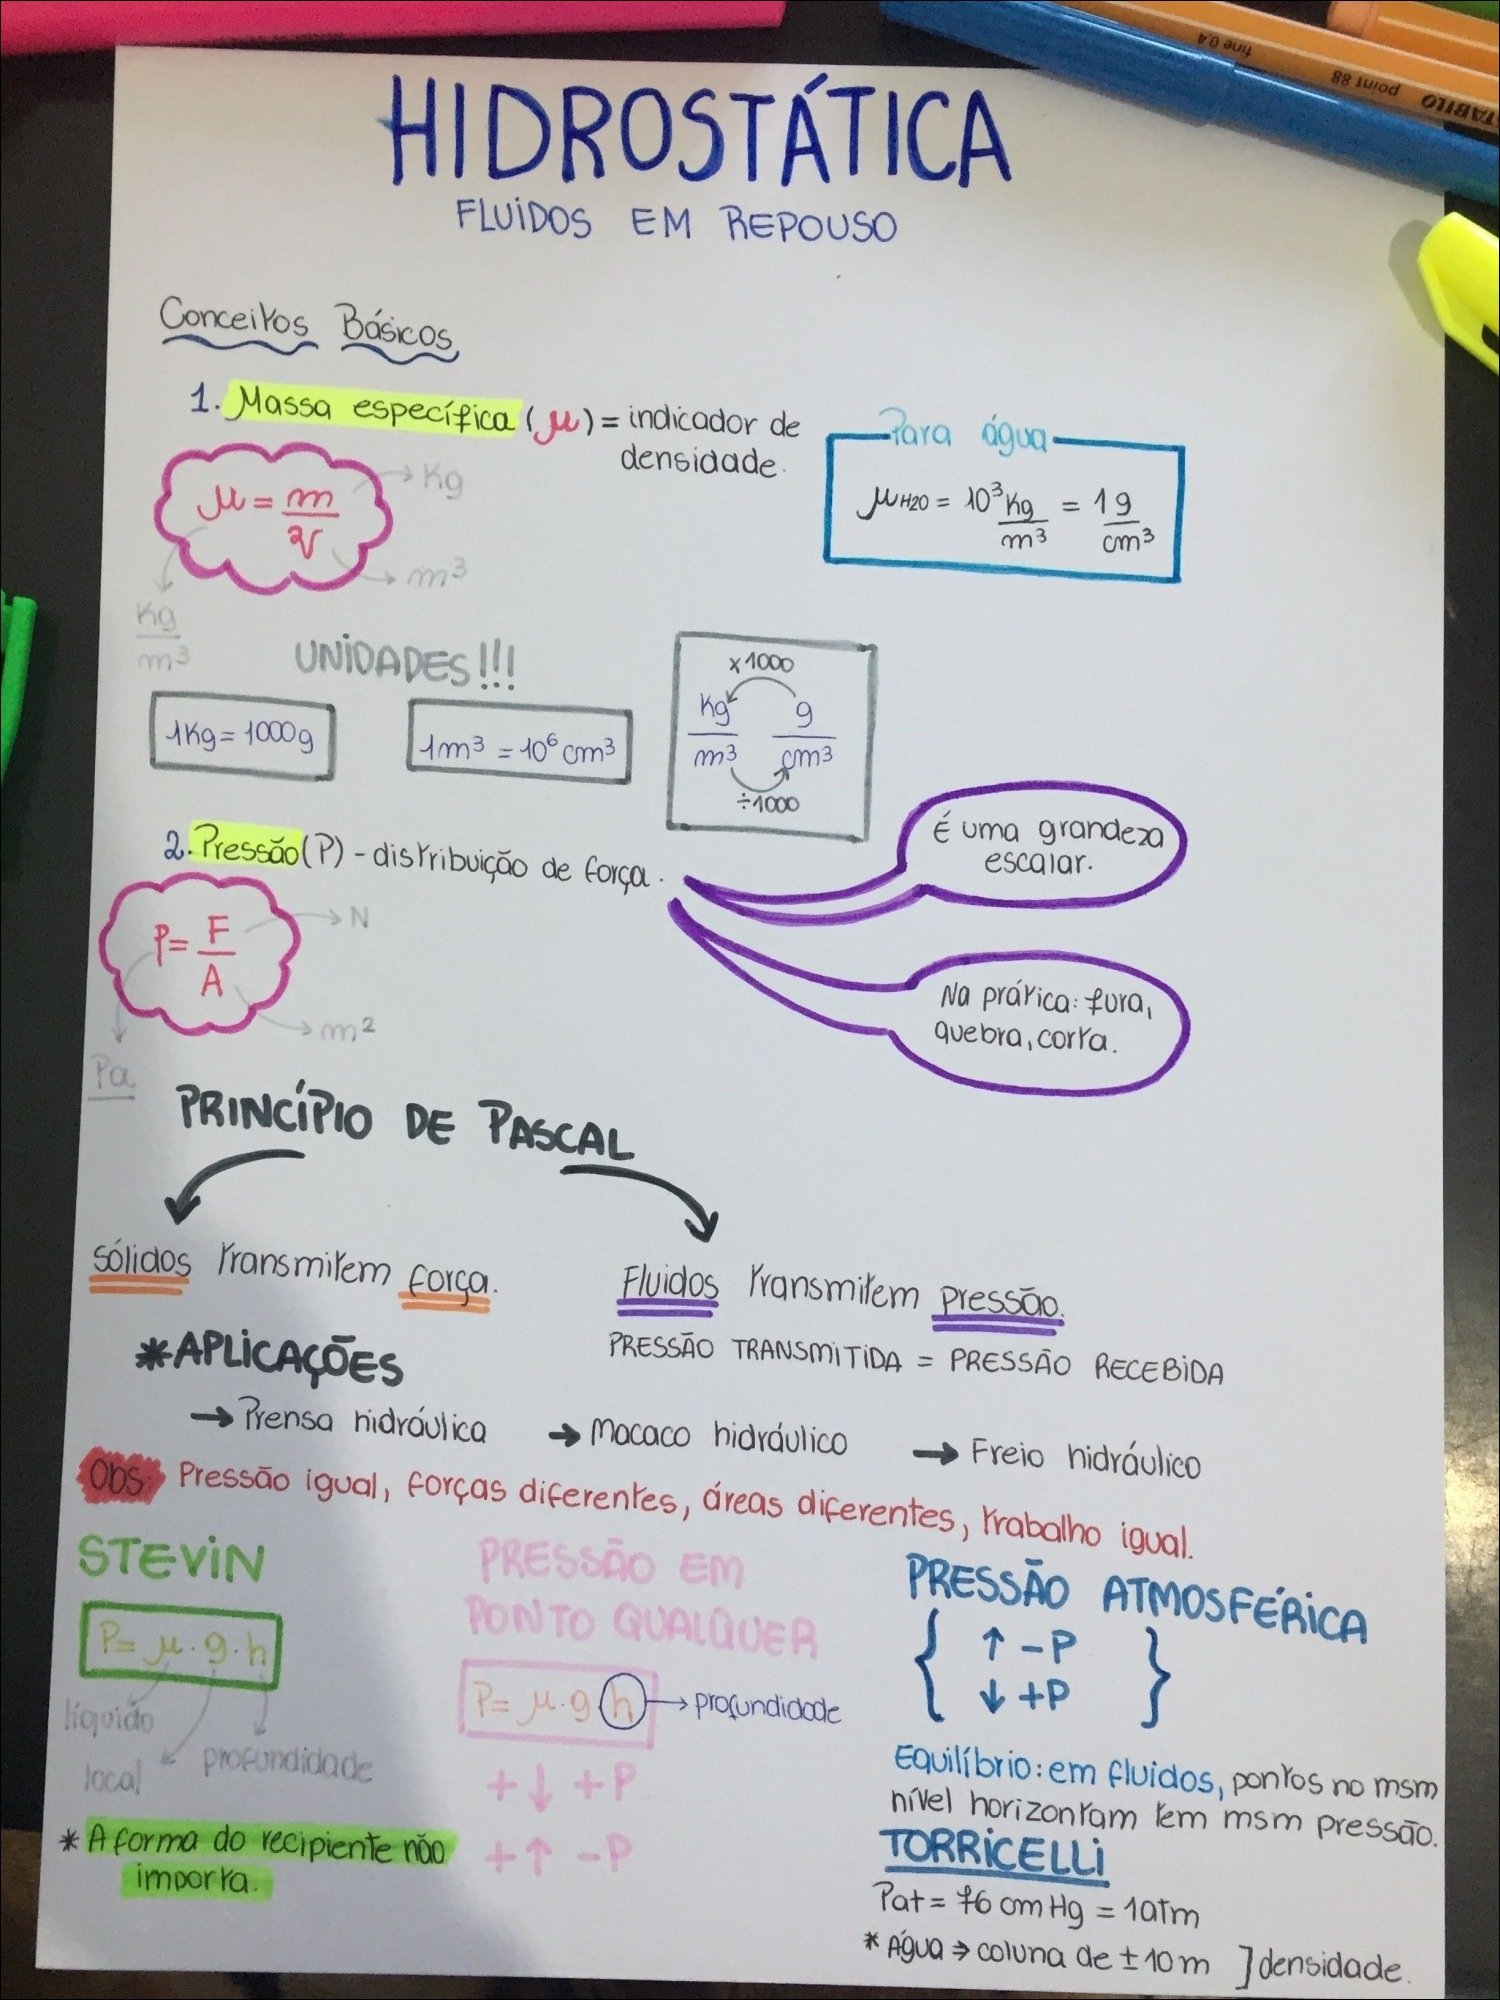 fine 0,4
point 88
STABILO
HIDROSTÁTICA
FLUIDOS EM REPOUSO
Conceitos Básicos
1. Massa específica (μ) = indicador de
densidade.
μ = m/V
Kg
m³
Kg/m³
Para água
μH2O = 10³ Kg/m³ = 1 g/cm³
UNIDADES!!!
1Kg = 1000g
1m³ = 10⁶ cm³
x1000
Kg/m³ g/cm³
÷1000
2. Pressão (P) - distribuição de força.
P = F/A
N
m²
Pa
É uma grandeza
escalar.
Na prática: fura,
quebra, corta.
PRINCÍPIO DE PASCAL
Sólidos transmitem força.
Fluidos transmitem pressão.
PRESSÃO TRANSMITIDA = PRESSÃO RECEBIDA
*APLICAÇÕES
→ Prensa hidráulica → Macaco hidráulico → Freio hidráulico
Obs: Pressão igual, forças diferentes, áreas diferentes, trabalho igual.
STEVIN
P = μ · g · h
líquido
local
profundidade
* A forma do recipiente não
importa.
PRESSÃO EM
PONTO QUALQUER
P = μ · g · h → profundidade
+ ↓ + P
+ ↑ - P
PRESSÃO ATMOSFÉRICA
{ ↑ - P
↓ + P }
Equilíbrio: em fluidos, pontos no msm
nível horizontam tem msm pressão.
TORRICELLI
Pat = 76 cm Hg = 1atm
* Água ⇒ coluna de ± 10 m ] densidade.